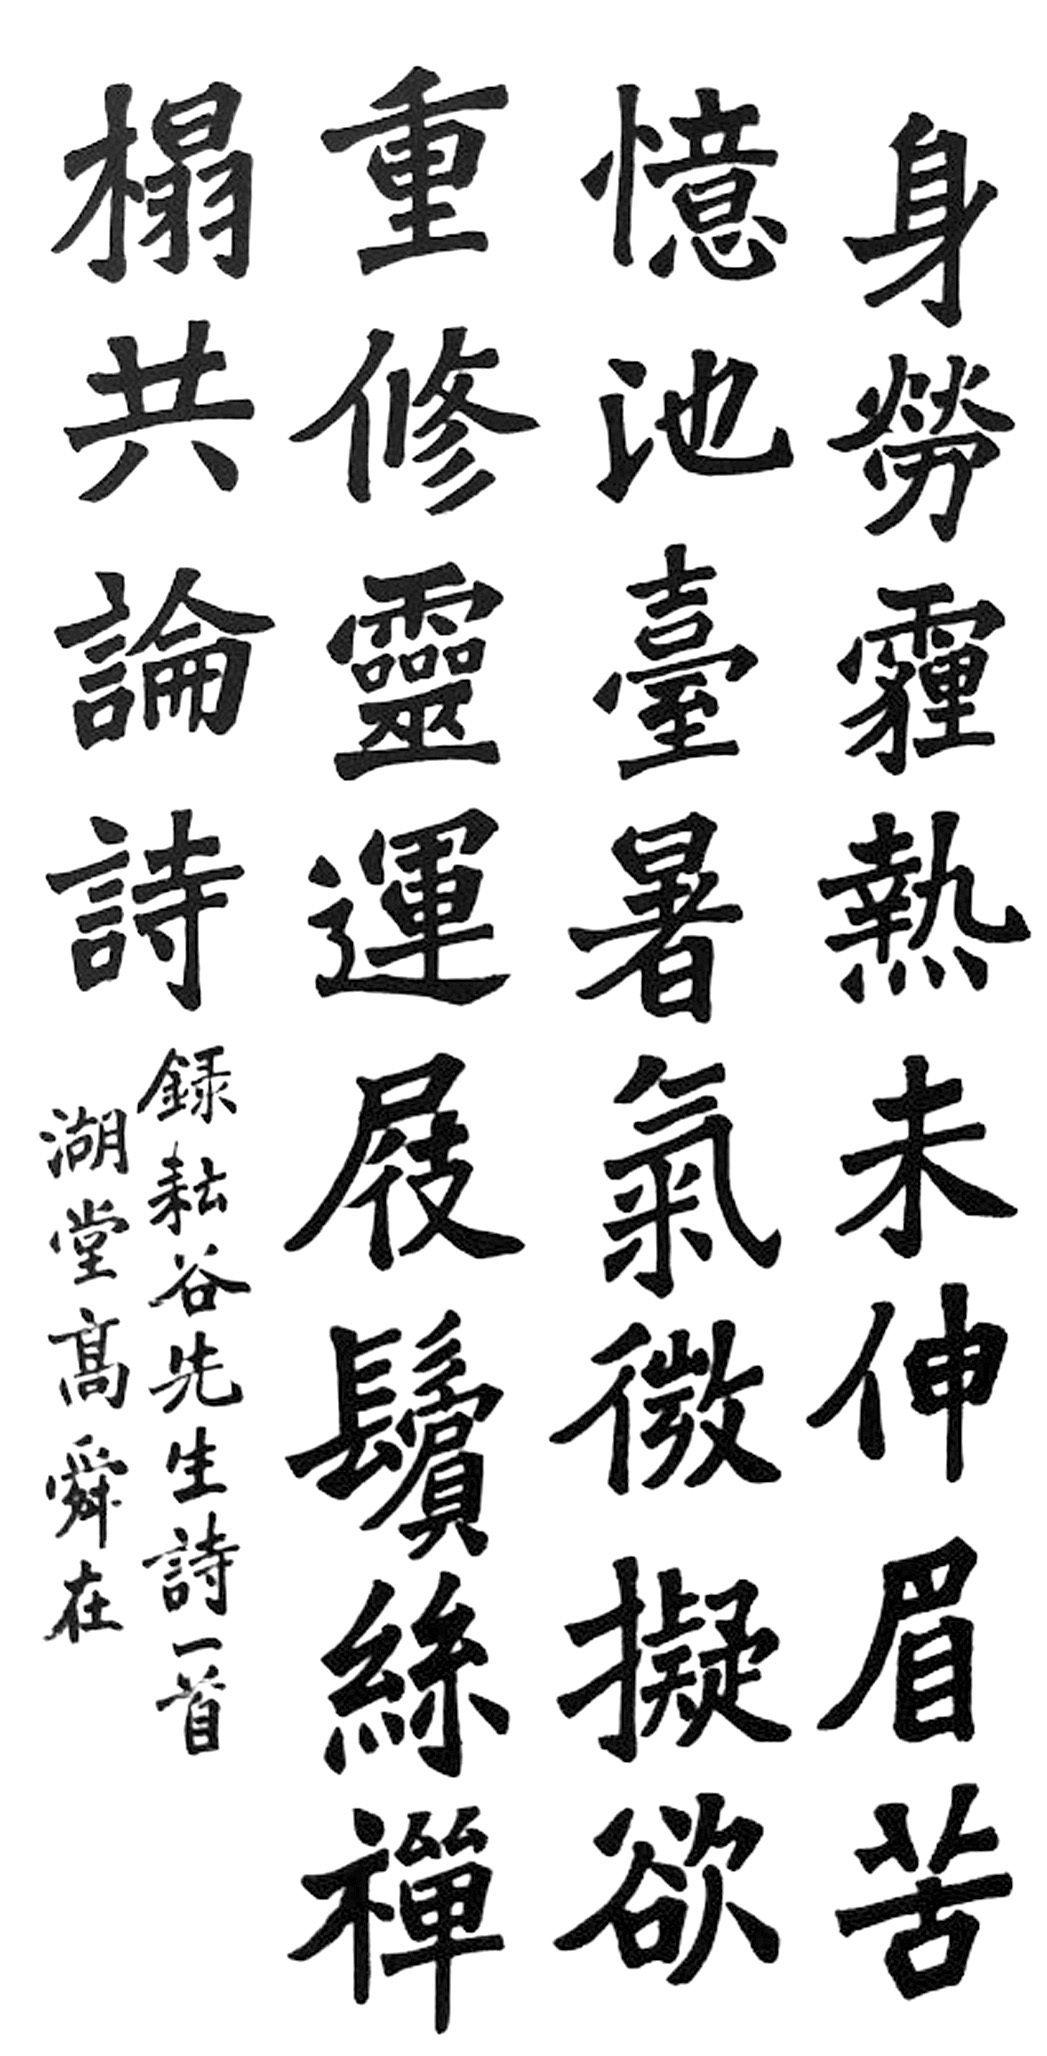 身勞霾熱未伸眉苦
憶池臺暑氣微擬欲
重修靈運屐鬢絲禪
榻共論詩
録耘谷先生詩一首
湖堂髙舜在